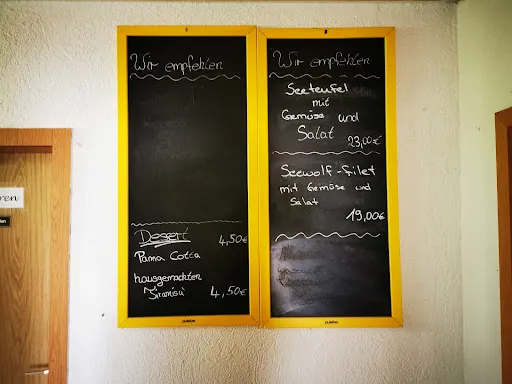 Wir empfehlen
Dessert
4,50€
Panna Cotta
hausgemachten
Tiramisù 4,50€
Wir empfehlen
Seeteufel
mit
Gemüse und
Salat
23,00€
Seewolf-Filet
mit Gemüse und
Salat
19,00€